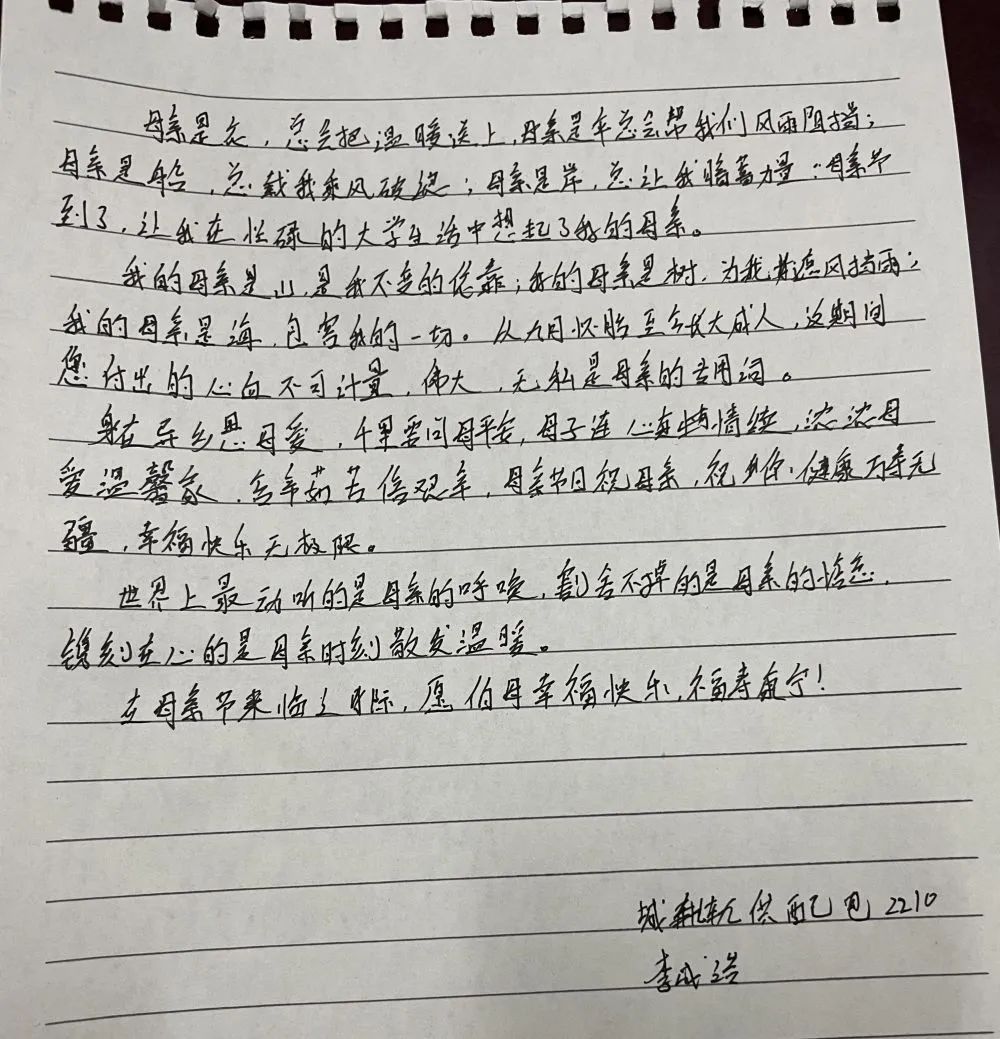 母亲是衣,总会把温暖送上,母亲是伞总会帮我们风雨阻挡;
母亲是船,总载我乘风破绽;母亲是岸,总让我暗蓄力量;母亲节
到了,让我在忙碌的大学生活中想起了我的母亲。
我的母亲是山,是我不变的依靠;我的母亲是树,为我遮风挡雨;
我的母亲是海,包容我的一切。从九月怀胎至今长大成人,这期间
您付出的心血不可计量,伟大,无私是母亲的专用词。
身在异乡思母爱,千里要问母平安,母子连心情续,浓浓母
爱温馨家,含辛茹苦倍艰辛,母亲节日祝母亲,祝你健康万寿无
疆,幸福快乐无极限。
世界上最动听的是母亲的呼唤,割舍不掉的是母亲的惦念,
镌刻在心的是母亲时刻散发温暖。
在母亲节来临之际,愿伯母幸福快乐,福寿康宁!
城轨供配电2210
李成浩